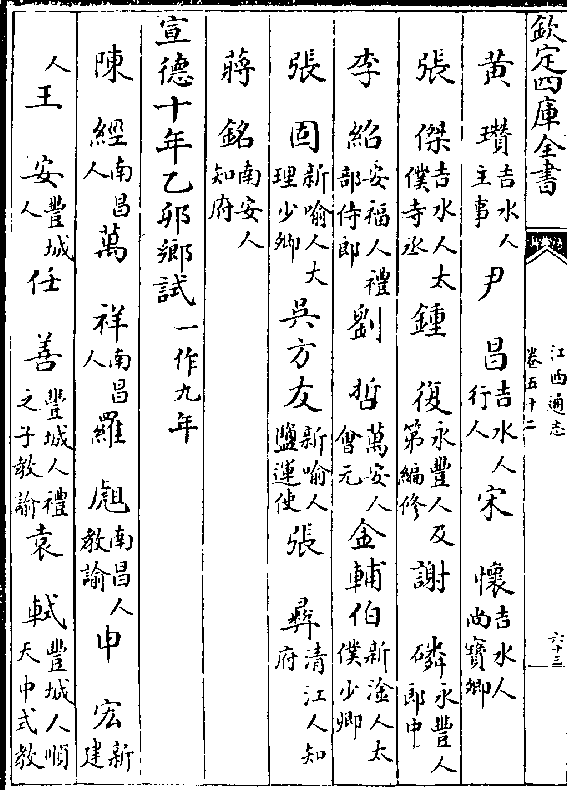 欽定四庫全書
江西通志
卷五十二
六十三
黄瓚吉水人主事 尹昌吉水人行人 宋懷吉水人尚寶卿
張傑吉水人太僕寺丞 鍾復永豐人及第編修 謝璘永豐人郎中
李紹安福人禮部侍郎 劉哲萬安人會元 金輔伯新淦人太僕少卿
張固新喻人大理少卿 吳方友新喻人鹽運使 張彛清江人知府
蔣銘南安人知府
宣德十年乙卯鄉試一作九年
陳經南昌人 萬祥南昌人 羅彪南昌人教諭 申宏新建
人 王安豐城人 任善豐城人禮之子教諭 袁軾豐城人順天中式教